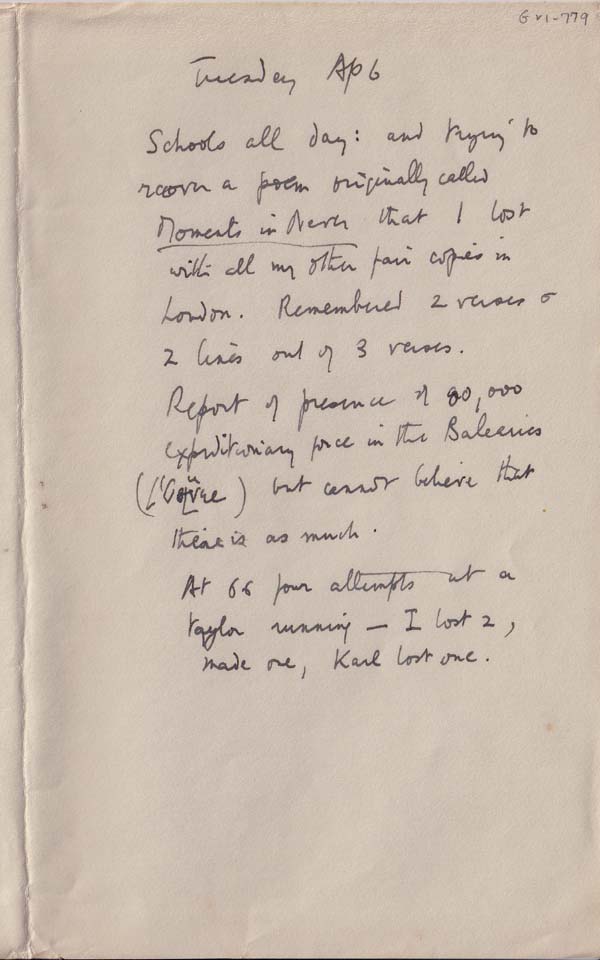 G VI-779
Tuesday Ap 6
Schools all day: and trying to
recover a poem originally called
Moments in Never that I lost
with all my other fair copies in
London. Remembered 2 verses &
2 lines out of 3 verses.
Report of presence of 80,000
expeditionary force in the Balearics
( ) but cannot believe that
there is as much.
At 66 four attempts at a
taylor running — I lost 2,
made one, Karl lost one.